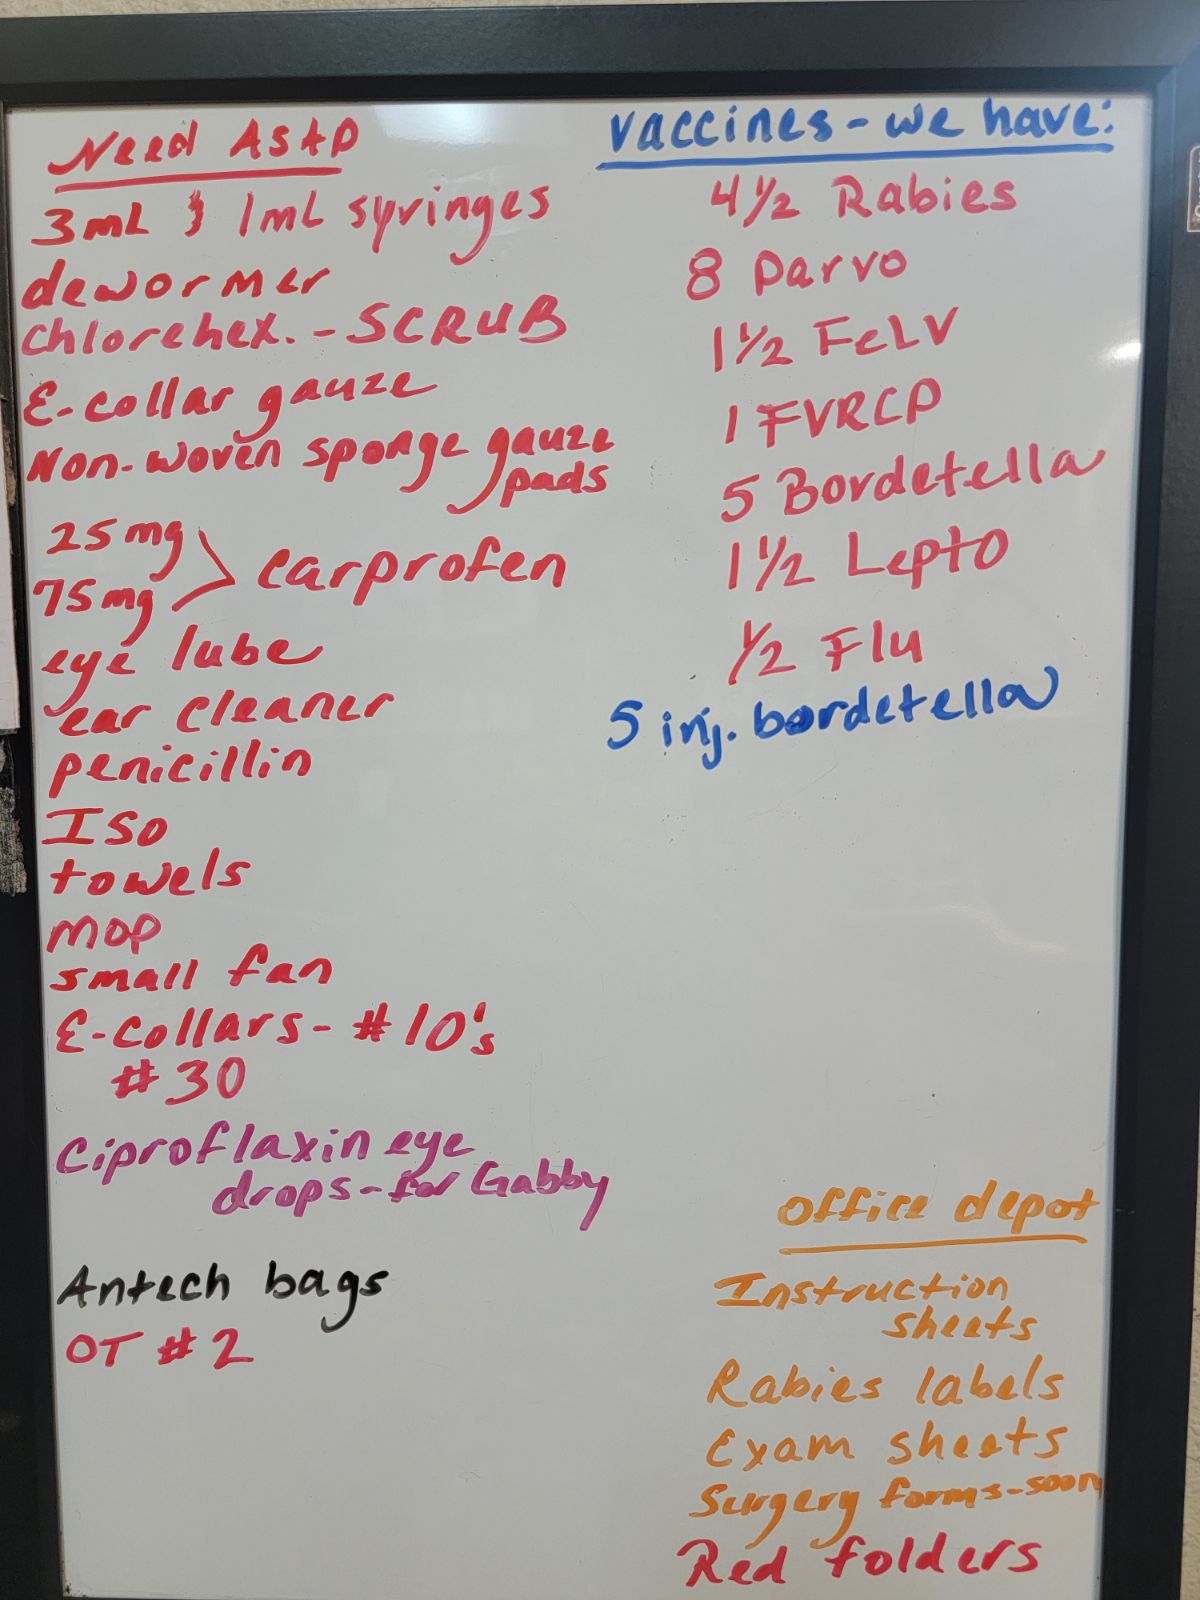 Need ASAP
3mL & 1mL syringes
dewormer
chlorehex. - SCRUB
E-collar gauze
Non-woven sponge gauze
pads
25mg
75mg > carprofen
eye lube
ear cleaner
penicillin
Iso
towels
mop
small fan
E-collars - #10's
#30
Ciproflaxin eye
drops - for Gabby
Antech bags
OT #2
vaccines - we have:
4 1/2 Rabies
8 Parvo
1 1/2 FeLV
1 FVRCP
5 Bordetella
1 1/2 Lepto
1/2 Flu
5 inj. bordetella
Office depot
Instruction
sheets
Rabies labels
Exam sheets
Surgery forms - soon
Red folders